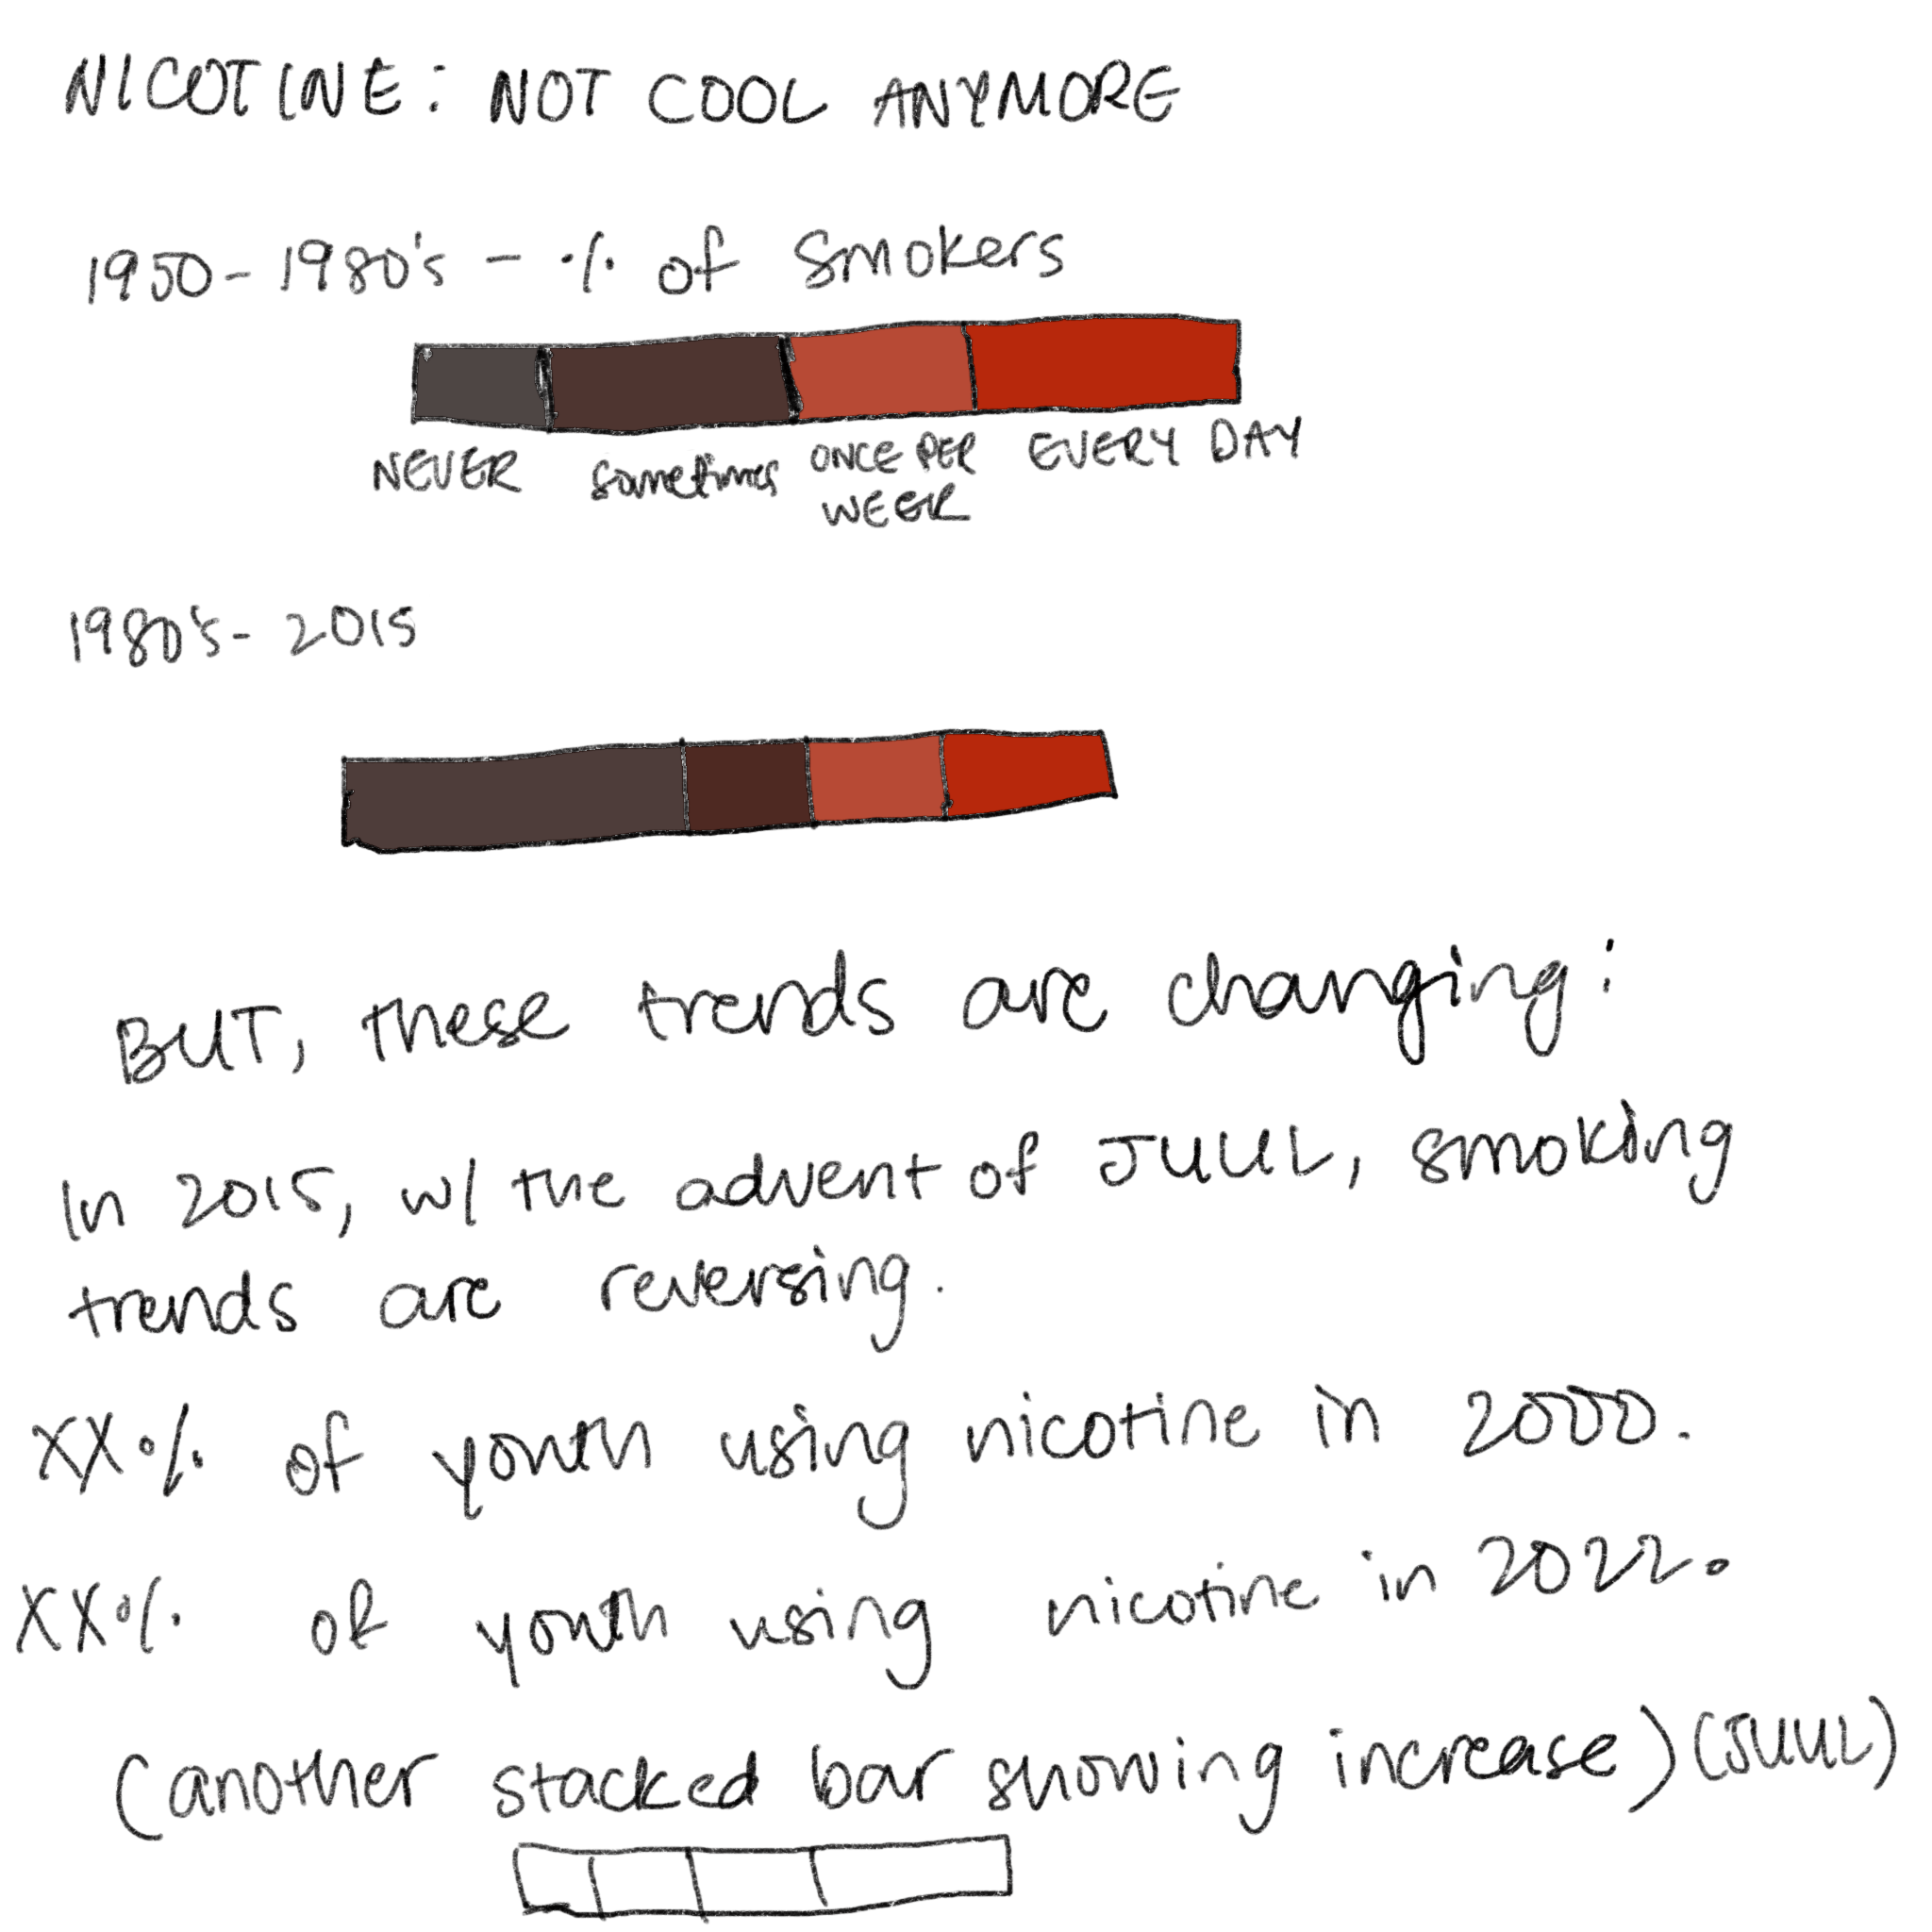 NICOTINE: NOT COOL ANYMORE
1950-1980's - % of smokers
NEVER sometimes ONCE PER EVERY DAY
WEEK
1980's- 2015
BUT, these trends are changing:
In 2015, w/ the advent of JUUL, smoking
trends are reversing.
XX% of youth using nicotine in 2000.
XX% of youth using nicotine in 2022.
(another stacked bar showing increase) (JUUL)